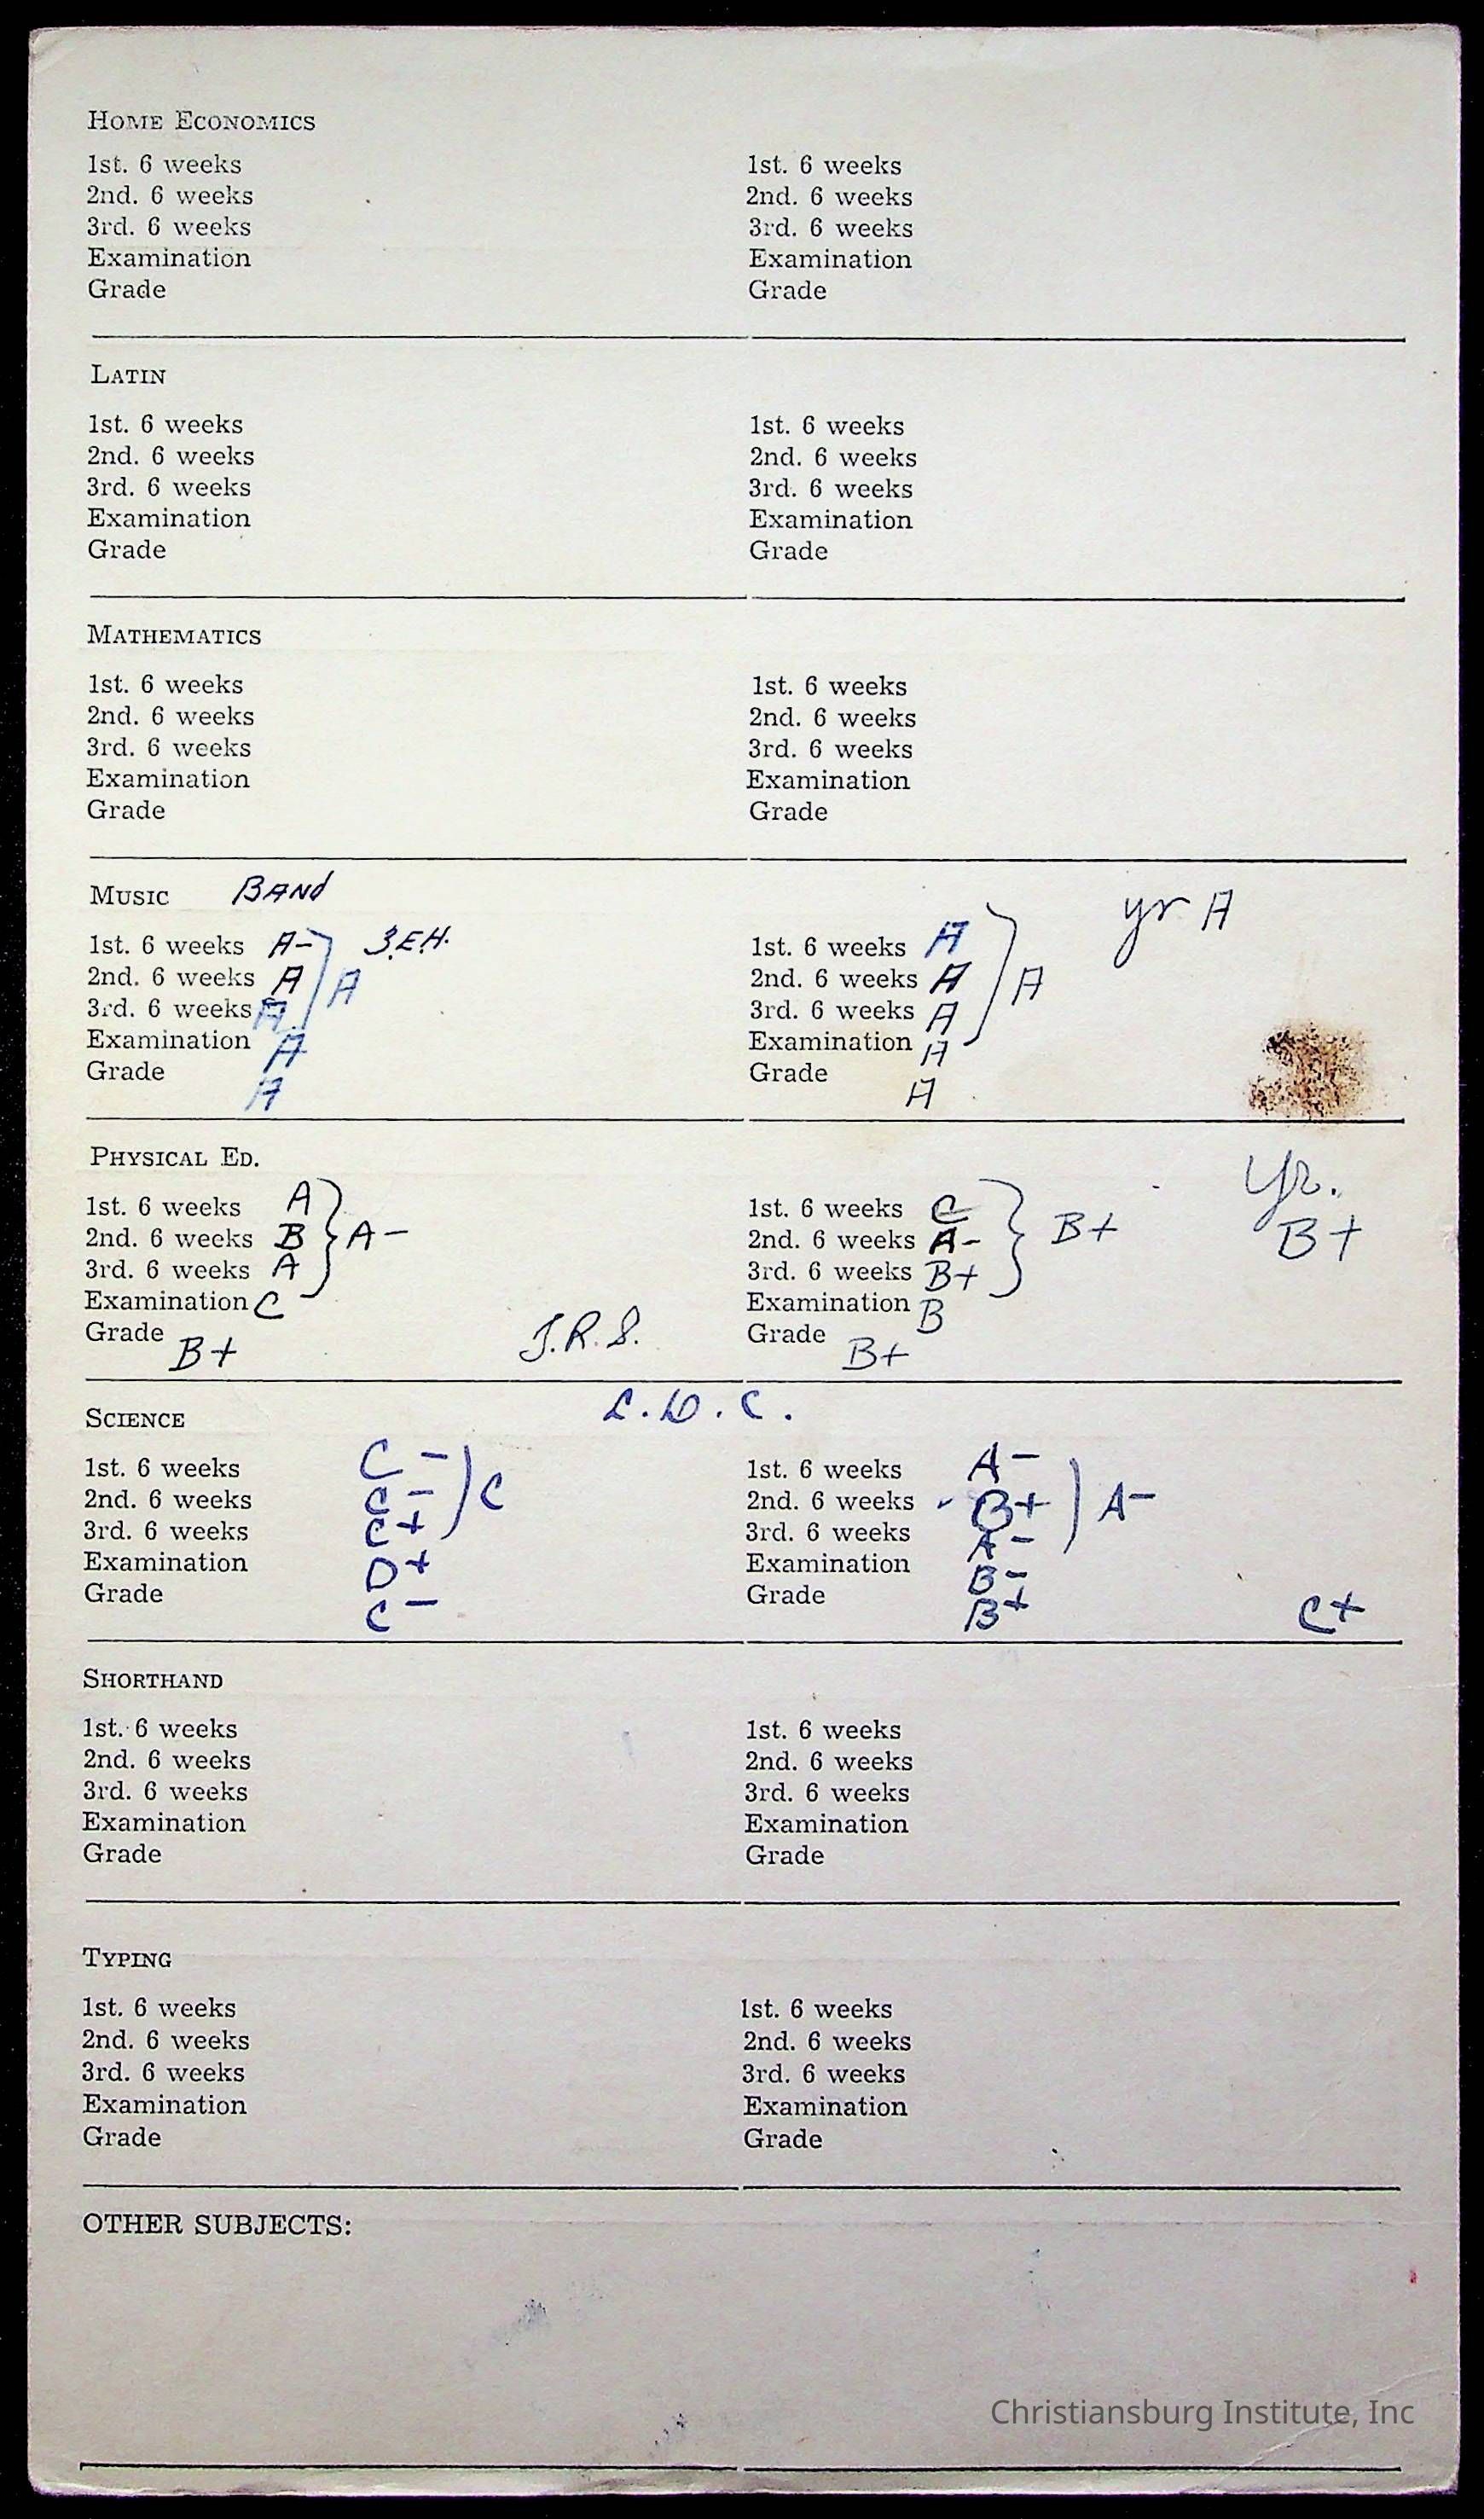 HOME ECONOMICS
1st. 6 weeks 1st. 6 weeks
2nd. 6 weeks 2nd. 6 weeks
3rd. 6 weeks 3rd. 6 weeks
Examination Examination
Grade Grade
LATIN
1st. 6 weeks 1st. 6 weeks
2nd. 6 weeks 2nd. 6 weeks
3rd. 6 weeks 3rd. 6 weeks
Examination Examination
Grade Grade
MATHEMATICS
1st. 6 weeks 1st. 6 weeks
2nd. 6 weeks 2nd. 6 weeks
3rd. 6 weeks 3rd. 6 weeks
Examination Examination
Grade Grade
MUSIC BAND yr A
1st. 6 weeks A- 1st. 6 weeks A
2nd. 6 weeks A A 2nd. 6 weeks A A
3rd. 6 weeks A 3rd. 6 weeks A
Examination A Examination A
Grade A Grade A
PHYSICAL ED. Yr.
1st. 6 weeks A 1st. 6 weeks C
2nd. 6 weeks B A- 2nd. 6 weeks A- B+ B+
3rd. 6 weeks A 3rd. 6 weeks B+
Examination C Examination B
Grade B+ J.R.S. Grade B+
SCIENCE L.D.C.
1st. 6 weeks C- 1st. 6 weeks A-
2nd. 6 weeks C- C 2nd. 6 weeks B+ A-
3rd. 6 weeks C+ 3rd. 6 weeks A-
Examination D+ Examination B-
Grade C- Grade B+ C+
SHORTHAND
1st. 6 weeks 1st. 6 weeks
2nd. 6 weeks 2nd. 6 weeks
3rd. 6 weeks 3rd. 6 weeks
Examination Examination
Grade Grade
TYPING
1st. 6 weeks 1st. 6 weeks
2nd. 6 weeks 2nd. 6 weeks
3rd. 6 weeks 3rd. 6 weeks
Examination Examination
Grade Grade
OTHER SUBJECTS:
Christiansburg Institute, Inc